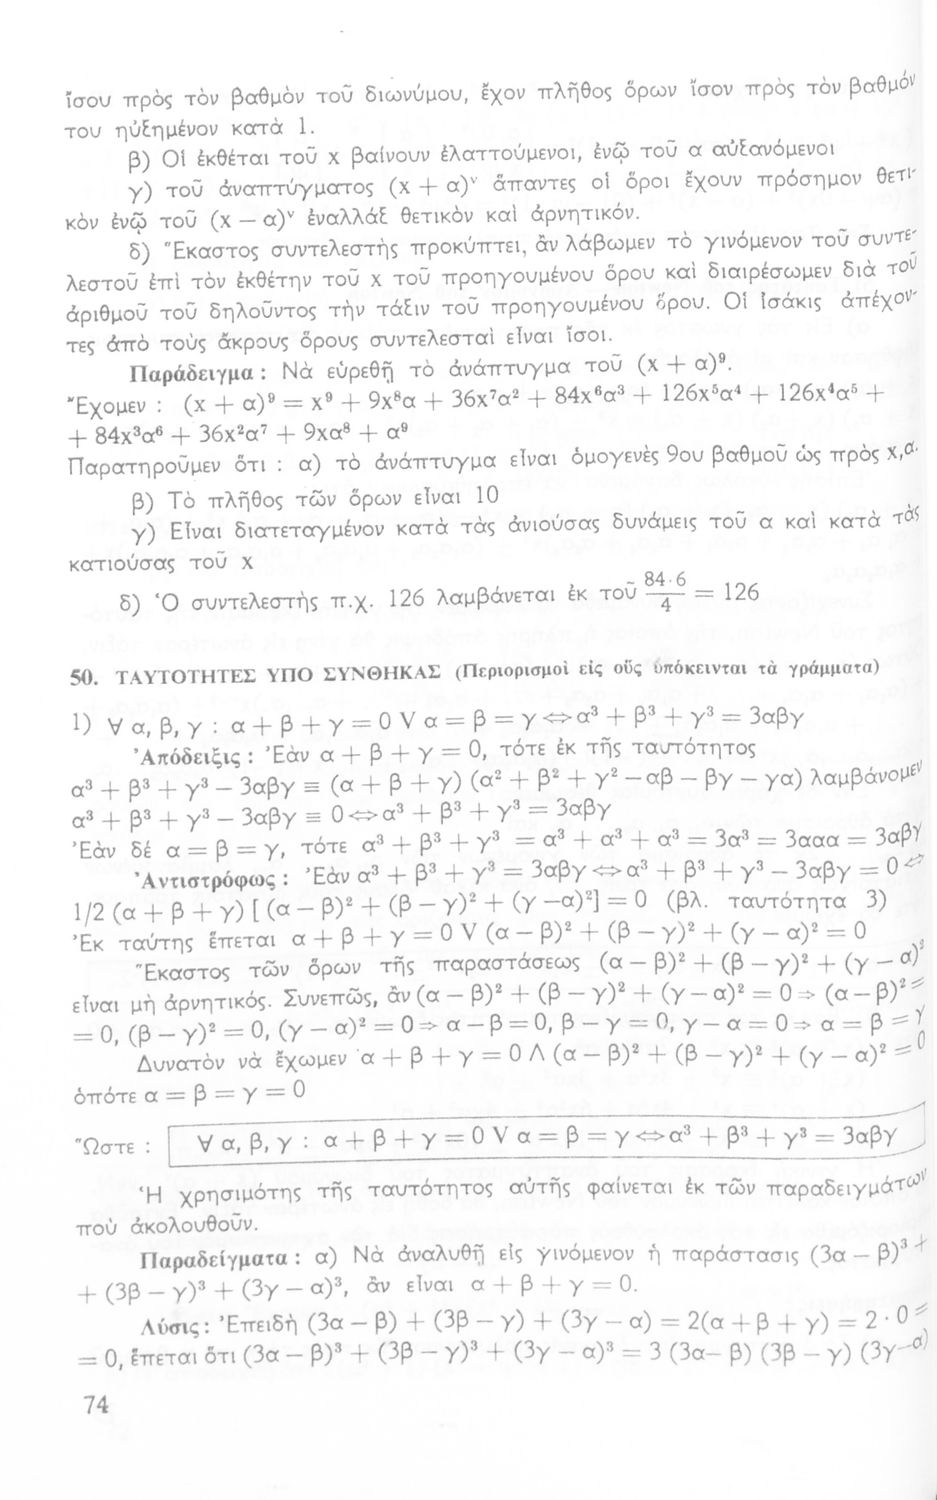 ἴσου πρὸς τὸν βαθμὸν τοῦ διωνύμου, ἔχον πλῆθος ὅρων ἴσον πρὸς τὸν βαθμόν
του ηὐξημένον κατὰ 1.
β) Οἱ ἐκθέται τοῦ x βαίνουν ἐλαττούμενοι, ἐνῷ τοῦ α αὐξανόμενοι
γ) τοῦ ἀναπτύγματος (x + α)ᵛ ἅπαντες οἱ ὅροι ἔχουν πρόσημον θετι-
κὸν ἐνῷ τοῦ (x — α)ᵛ ἐναλλὰξ θετικὸν καὶ ἀρνητικόν.
δ) Ἕκαστος συντελεστὴς προκύπτει, ἂν λάβωμεν τὸ γινόμενον τοῦ συντε-
λεστοῦ ἐπὶ τὸν ἐκθέτην τοῦ x τοῦ προηγουμένου ὅρου καὶ διαιρέσωμεν διὰ τοῦ
ἀριθμοῦ τοῦ δηλοῦντος τὴν τάξιν τοῦ προηγουμένου ὅρου. Οἱ ἰσάκις ἀπέχον-
τες ἀπὸ τοὺς ἄκρους ὅρους συντελεσταὶ εἶναι ἴσοι.
Παράδειγμα : Νὰ εὑρεθῇ τὸ ἀνάπτυγμα τοῦ (x + α)⁹.
Ἔχομεν : (x + α)⁹ = x⁹ + 9x⁸α + 36x⁷α² + 84x⁶α³ + 126x⁵α⁴ + 126x⁴α⁵ +
+ 84x³α⁶ + 36x²α⁷ + 9xα⁸ + α⁹
Παρατηροῦμεν ὅτι : α) τὸ ἀνάπτυγμα εἶναι ὁμογενὲς 9ου βαθμοῦ ὡς πρὸς x,α.
β) Τὸ πλῆθος τῶν ὅρων εἶναι 10
γ) Εἶναι διατεταγμένον κατὰ τὰς ἀνιούσας δυνάμεις τοῦ α καὶ κατὰ τὰς
κατιούσας τοῦ x
δ) Ὁ συντελεστὴς π.χ. 126 λαμβάνεται ἐκ τοῦ 84·6/4 = 126
50. ΤΑΥΤΟΤΗΤΕΣ ΥΠΟ ΣΥΝΘΗΚΑΣ (Περιορισμοὶ εἰς οὓς ὑπόκεινται τὰ γράμματα)
1) ∀ α, β, γ : α + β + γ = 0 V α = β = γ <=> α³ + β³ + γ³ = 3αβγ
Ἀπόδειξις : Ἐὰν α + β + γ = 0, τότε ἐκ τῆς ταυτότητος
α³ + β³ + γ³ — 3αβγ ≡ (α + β + γ) (α² + β² + γ² — αβ — βγ — γα) λαμβάνομεν
α³ + β³ + γ³ — 3αβγ ≡ 0 <=> α³ + β³ + γ³ = 3αβγ
Ἐὰν δέ α = β = γ, τότε α³ + β³ + γ³ = α³ + α³ + α³ = 3α³ = 3ααα = 3αβγ
Ἀντιστρόφως : Ἐὰν α³ + β³ + γ³ = 3αβγ <=> α³ + β³ + γ³ — 3αβγ = 0 <=>
1/2 (α + β + γ) [ (α — β)² + (β — γ)² + (γ —α)²] = 0 (βλ. ταυτότητα 3)
Ἐκ ταύτης ἕπεται α + β + γ = 0 V (α — β)² + (β — γ)² + (γ — α)² = 0
Ἕκαστος τῶν ὅρων τῆς παραστάσεως (α — β)² + (β — γ)² + (γ — α)²
εἶναι μὴ ἀρνητικός. Συνεπῶς, ἂν (α — β)² + (β — γ)² + (γ — α)² = 0 => (α — β)² =
= 0, (β — γ)² = 0, (γ — α)² = 0 => α — β = 0, β — γ = 0, γ — α = 0 => α = β = γ
Δυνατὸν νὰ ἔχωμεν α + β + γ = 0 Λ (α — β)² + (β — γ)² + (γ — α)² = 0
ὁπότε α = β = γ = 0
Ὥστε : ∀ α, β, γ : α + β + γ = 0 V α = β = γ <=> α³ + β³ + γ³ = 3αβγ
Ἡ χρησιμότης τῆς ταυτότητος αὐτῆς φαίνεται ἐκ τῶν παραδειγμάτων
ποὺ ἀκολουθοῦν.
Παραδείγματα : α) Νὰ ἀναλυθῇ εἰς γινόμενον ἡ παράστασις (3α — β)³ +
+ (3β — γ)³ + (3γ — α)³, ἂν εἶναι α + β + γ = 0.
Λύσις : Ἐπειδὴ (3α — β) + (3β — γ) + (3γ — α) = 2(α + β + γ) = 2 · 0 =
= 0, ἕπεται ὅτι (3α — β)³ + (3β — γ)³ + (3γ — α)³ = 3 (3α— β) (3β — γ) (3γ—α)
74